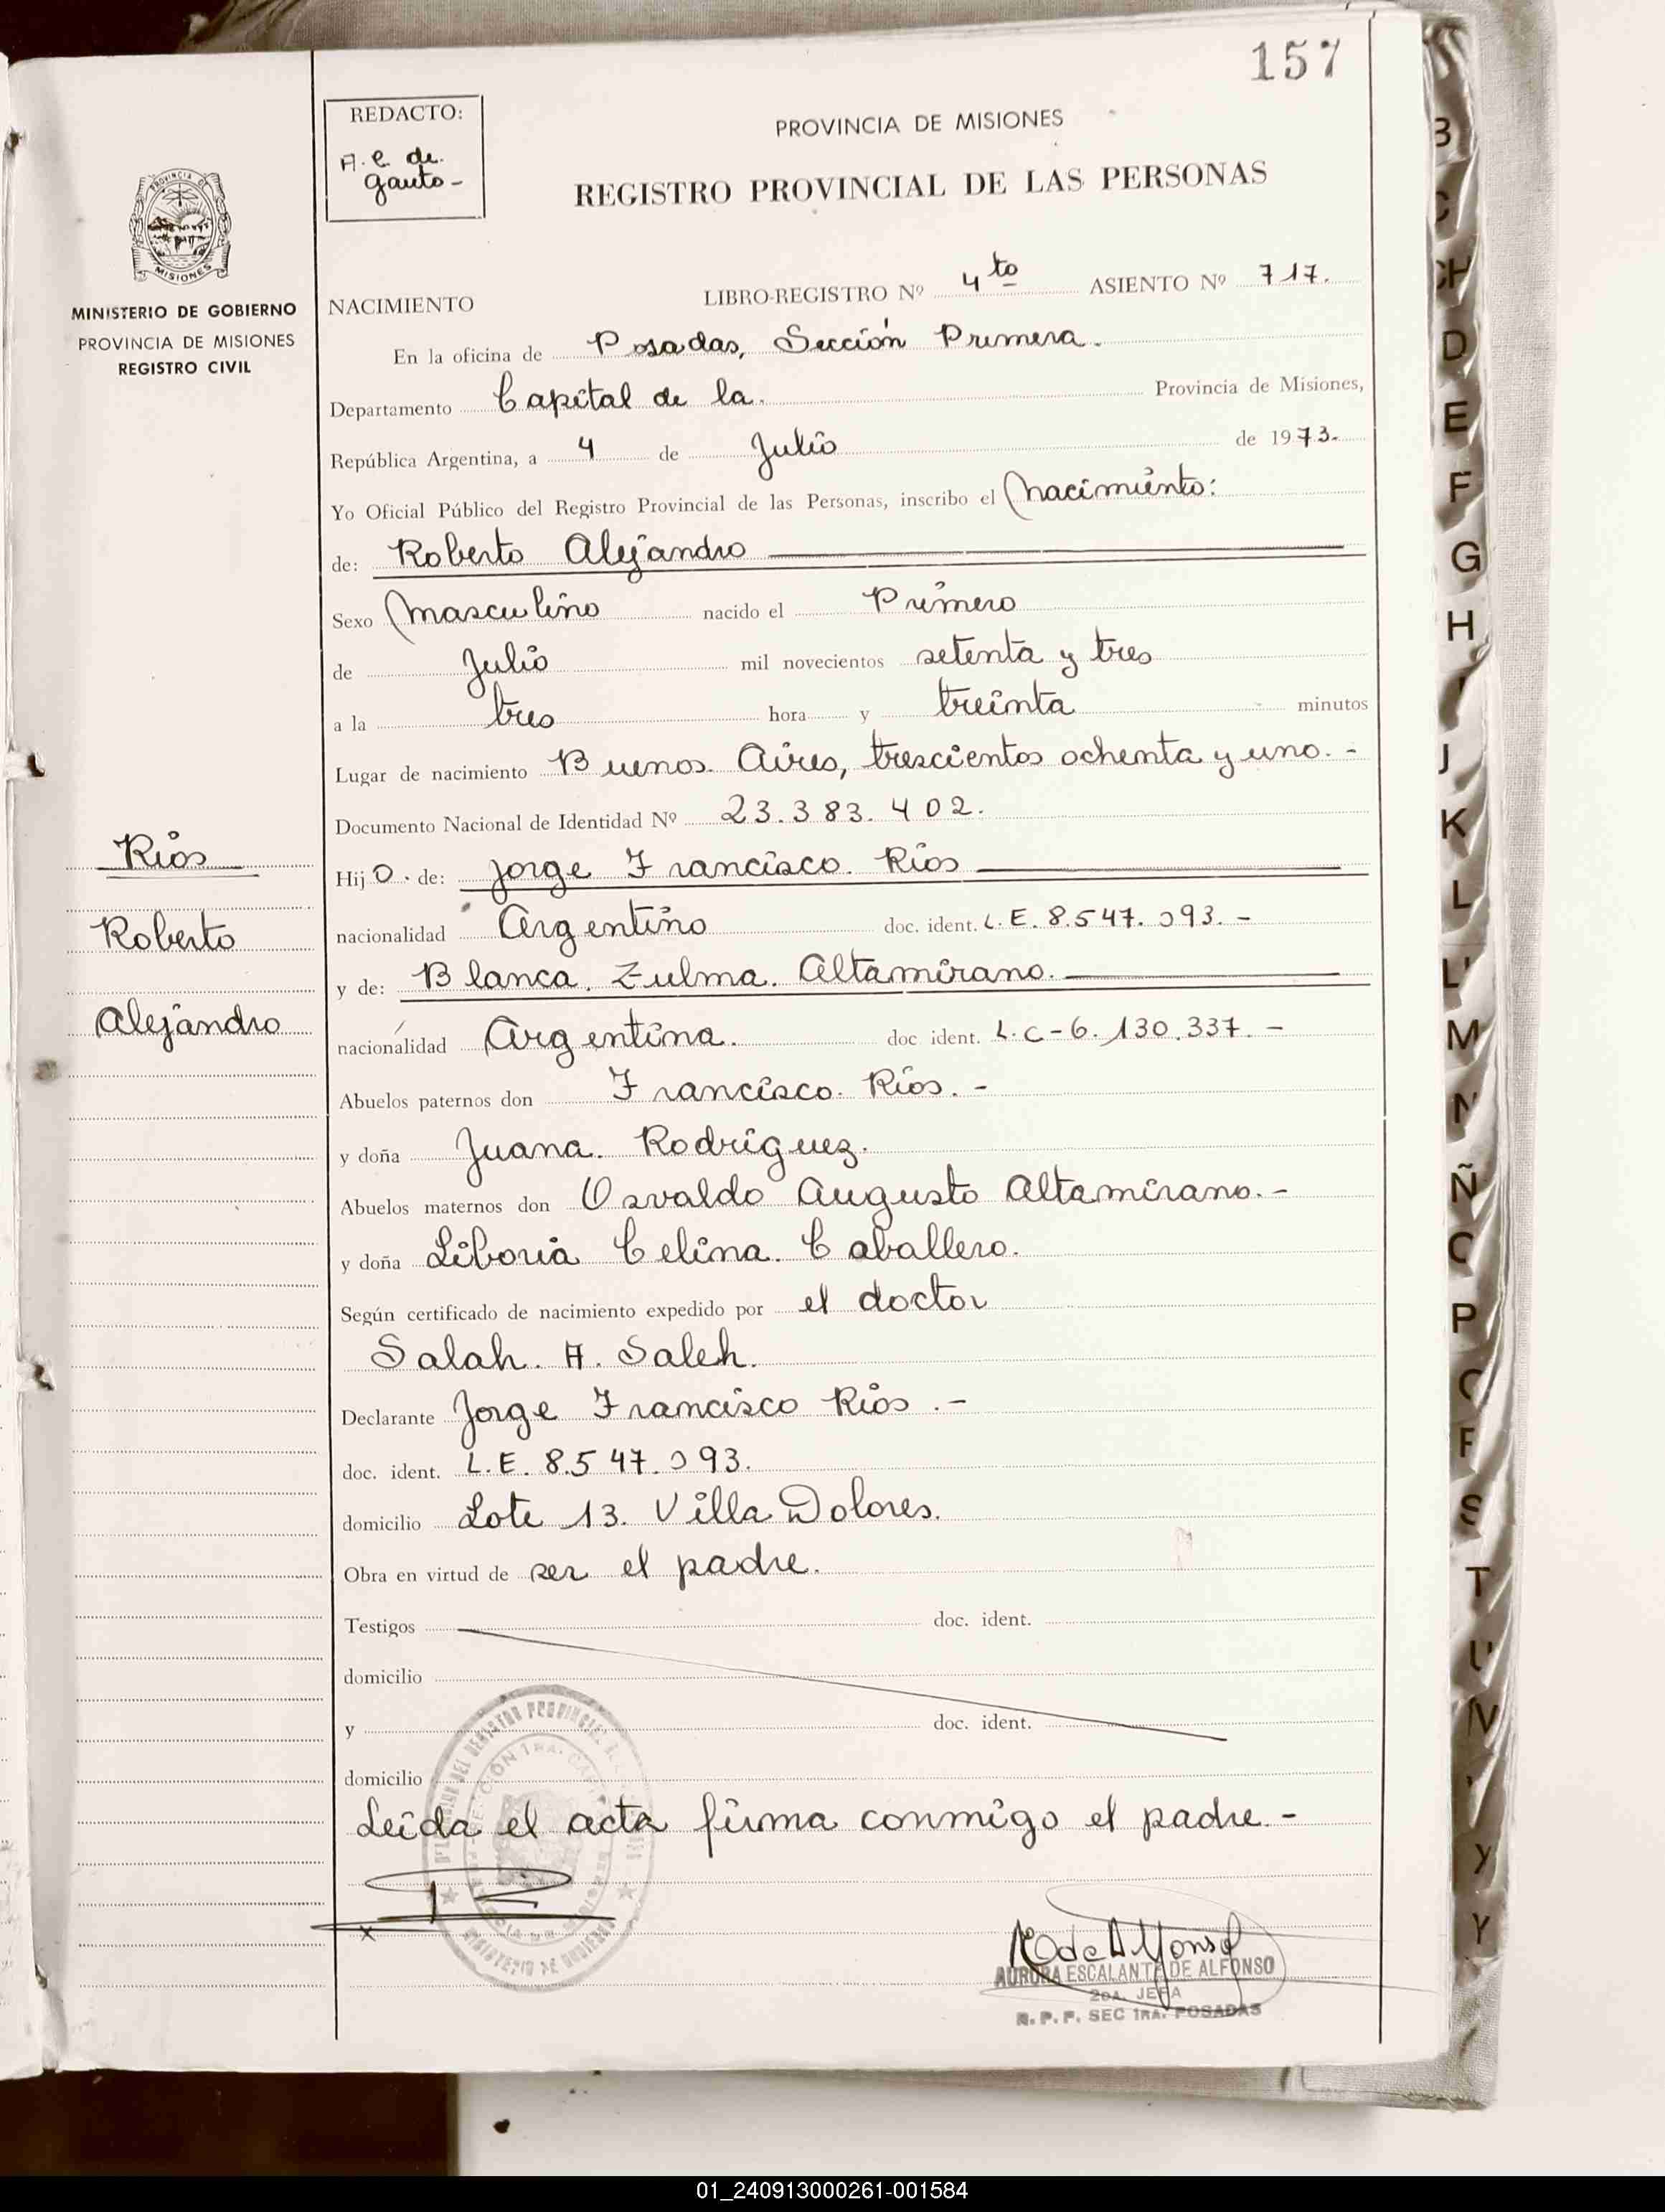 157
REDACTO:
A. E. de.
Gauto -
PROVINCIA DE MISIONES
REGISTRO PROVINCIAL DE LAS PERSONAS
PROVINCIA DE
MISIONES
MINISTERIO DE GOBIERNO
PROVINCIA DE MISIONES
REGISTRO CIVIL
NACIMIENTO LIBRO-REGISTRO Nº 4to ASIENTO Nº 717.
En la oficina de Posadas, Sección Primera.
Departamento Capital de la. Provincia de Misiones,
República Argentina, a 4 de Julio de 1973.
Yo Oficial Público del Registro Provincial de las Personas, inscribo el Nacimiento:
de: Roberto Alejandro
Sexo Masculino nacido el Primero
de Julio mil novecientos setenta y tres
a la tres hora y treinta minutos
Lugar de nacimiento Buenos Aires, trescientos ochenta y uno. -
Documento Nacional de Identidad Nº 23.383.402.
Hijo. de: Jorge Francisco Ríos
nacionalidad Argentino doc. ident. L.E. 8.547.093. -
y de: Blanca Zulma Altamirano.
nacionalidad Argentina. doc ident. L.C-6.130.337. -
Abuelos paternos don Francisco Ríos. -
y doña Juana Rodríguez.
Abuelos maternos don Osvaldo Augusto Altamirano. -
y doña Liboria Celina Caballero.
Según certificado de nacimiento expedido por el doctor
Salah. A. Saleh.
Declarante Jorge Francisco Ríos. -
doc. ident. L.E. 8.547.093.
domicilio Lote 13. Villa Dolores.
Obra en virtud de ser el padre.
Testigos doc. ident.
domicilio
y doc. ident.
domicilio
Leída el acta firma conmigo el padre. -
Ríos
Roberto
Alejandro
AURORA ESCALANTE DE ALFONSO
2DA. JEFA
R. P. P. SEC 1RA. POSADAS
B
C
CH
D
E
F
G
H
I
J
K
L
LL
M
N
Ñ
O
P
Q
R
S
T
U
V
Y
Y
01_240913000261-001584